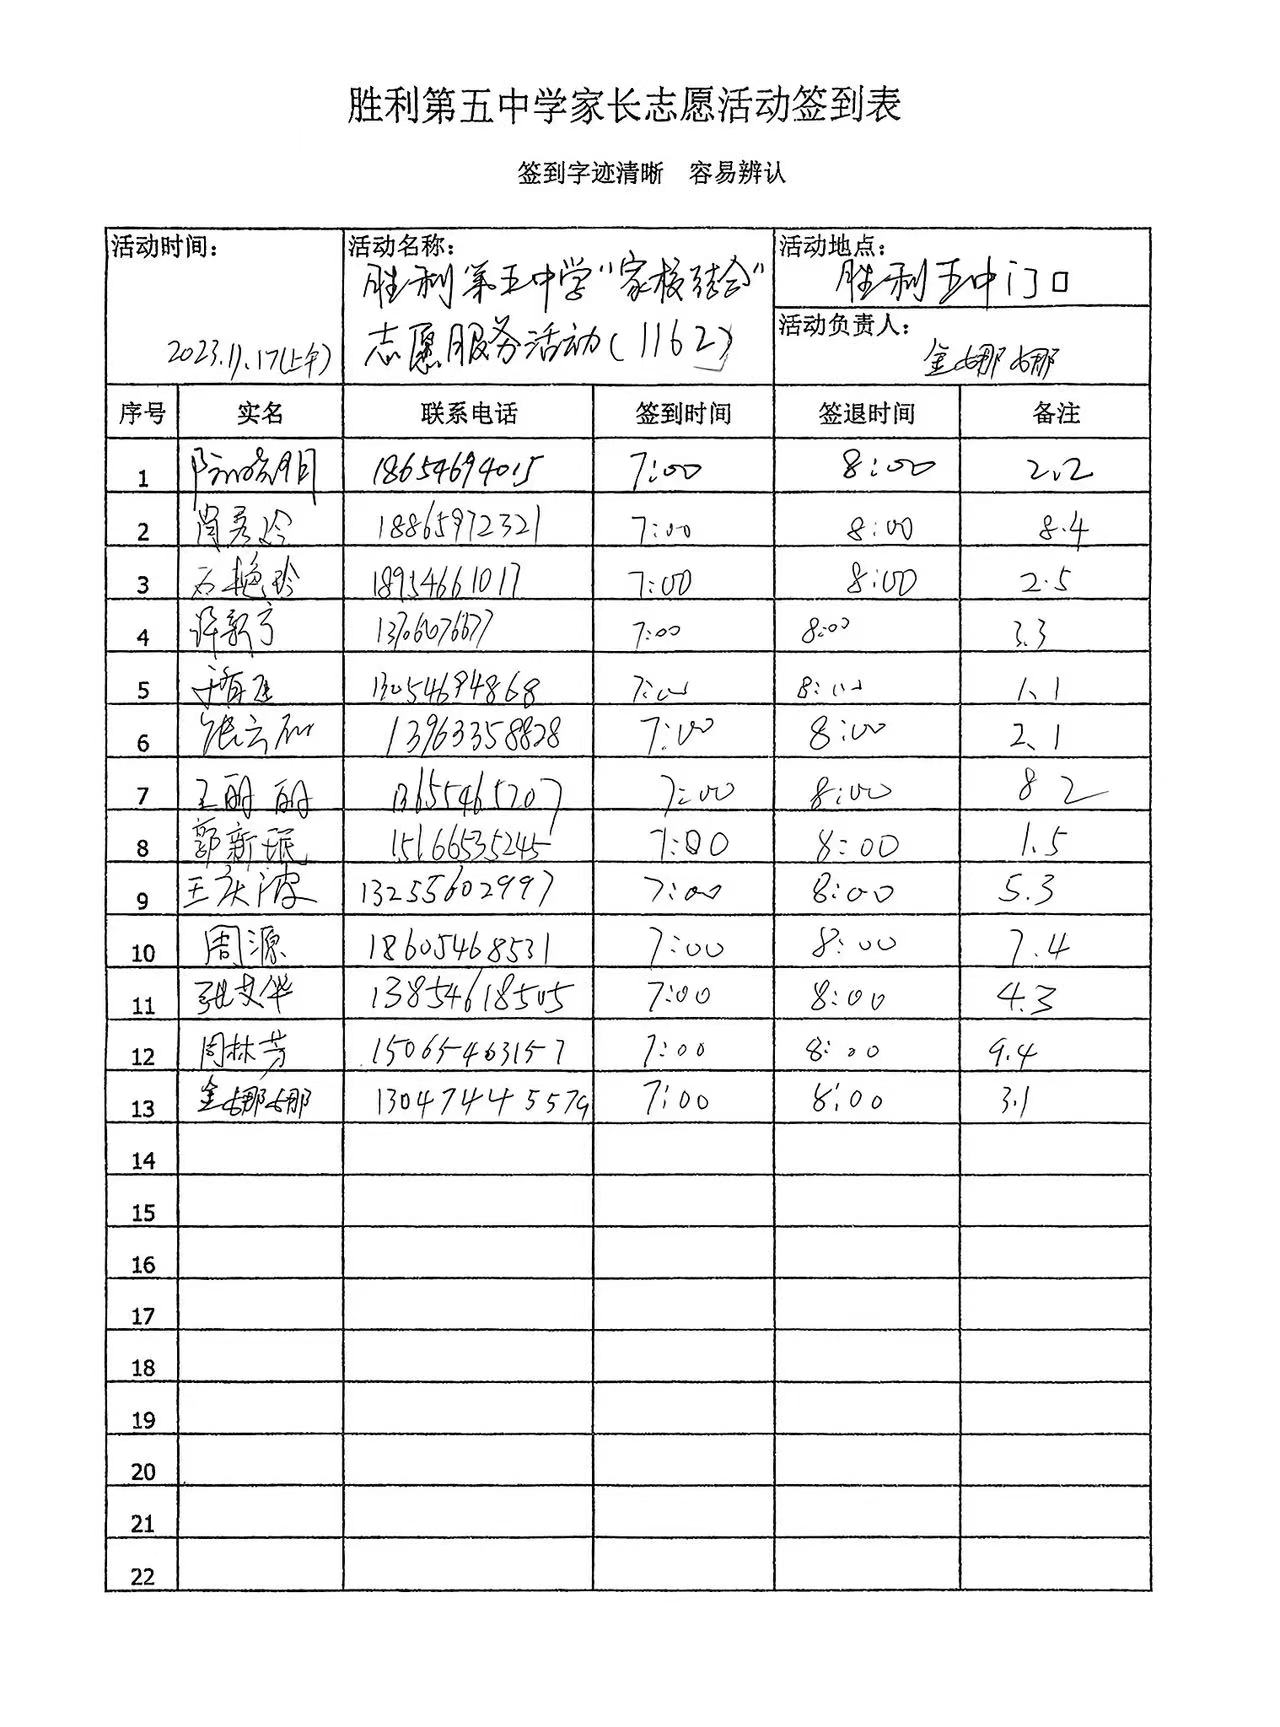 胜利第五中学家长志愿活动签到表
签到字迹清晰 容易辨认
活动时间: 2023.11.17(上午)
活动名称: 胜利第五中学"家校结合"
志愿服务活动(1162)
活动地点: 胜利五中门口
活动负责人: 金娜娜
序号 实名 联系电话 签到时间 签退时间 备注
1 18654694015 7:00 8:00 2.2
2 18865972321 7:00 8:00 8.4
3 石艳玲 18954661017 7:00 8:00 2.5
4 许新方 7:00 8:00 3.3
5 13054694868 7:00 8:00 1.1
6 13963358828 7:00 8:00 2.1
7 王丽丽 13655465707 7:00 8:00 8 2
8 郭新珉 15166535245 7:00 8:00 1.5
9 王庆波 13255602997 7:00 8:00 5.3
10 周源 18605468531 7:00 8:00 7.4
11 张文华 13854618505 7:00 8:00 4.3
12 周林芳 15065463157 7:00 8:00 9.4
13 金娜娜 13047445579 7:00 8:00 3.1
14
15
16
17
18
19
20
21
22